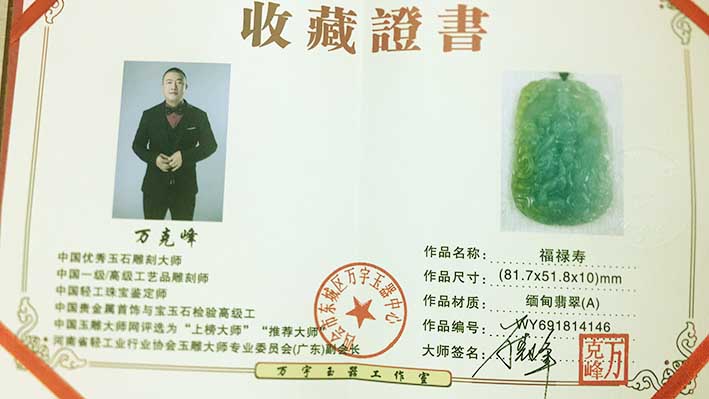 收藏證書
万克峰
中国优秀玉石雕刻大师
中国一级/高级工艺品雕刻师
中国轻工珠宝鉴定师
中国贵金属首饰与宝玉石检验高级工
中国玉雕大师网评选为“上榜大师”“推荐大师”
河南省轻工业行业协会玉雕大师专业委员会(广东)副会长
作品名称: 福禄寿
作品尺寸: (81.7x51.8x10)mm
作品材质: 缅甸翡翠(A)
作品编号: WY691814146
大师签名: 万克峰
四会市东城区万宇玉器中心
万克峰
万宇玉器工作室